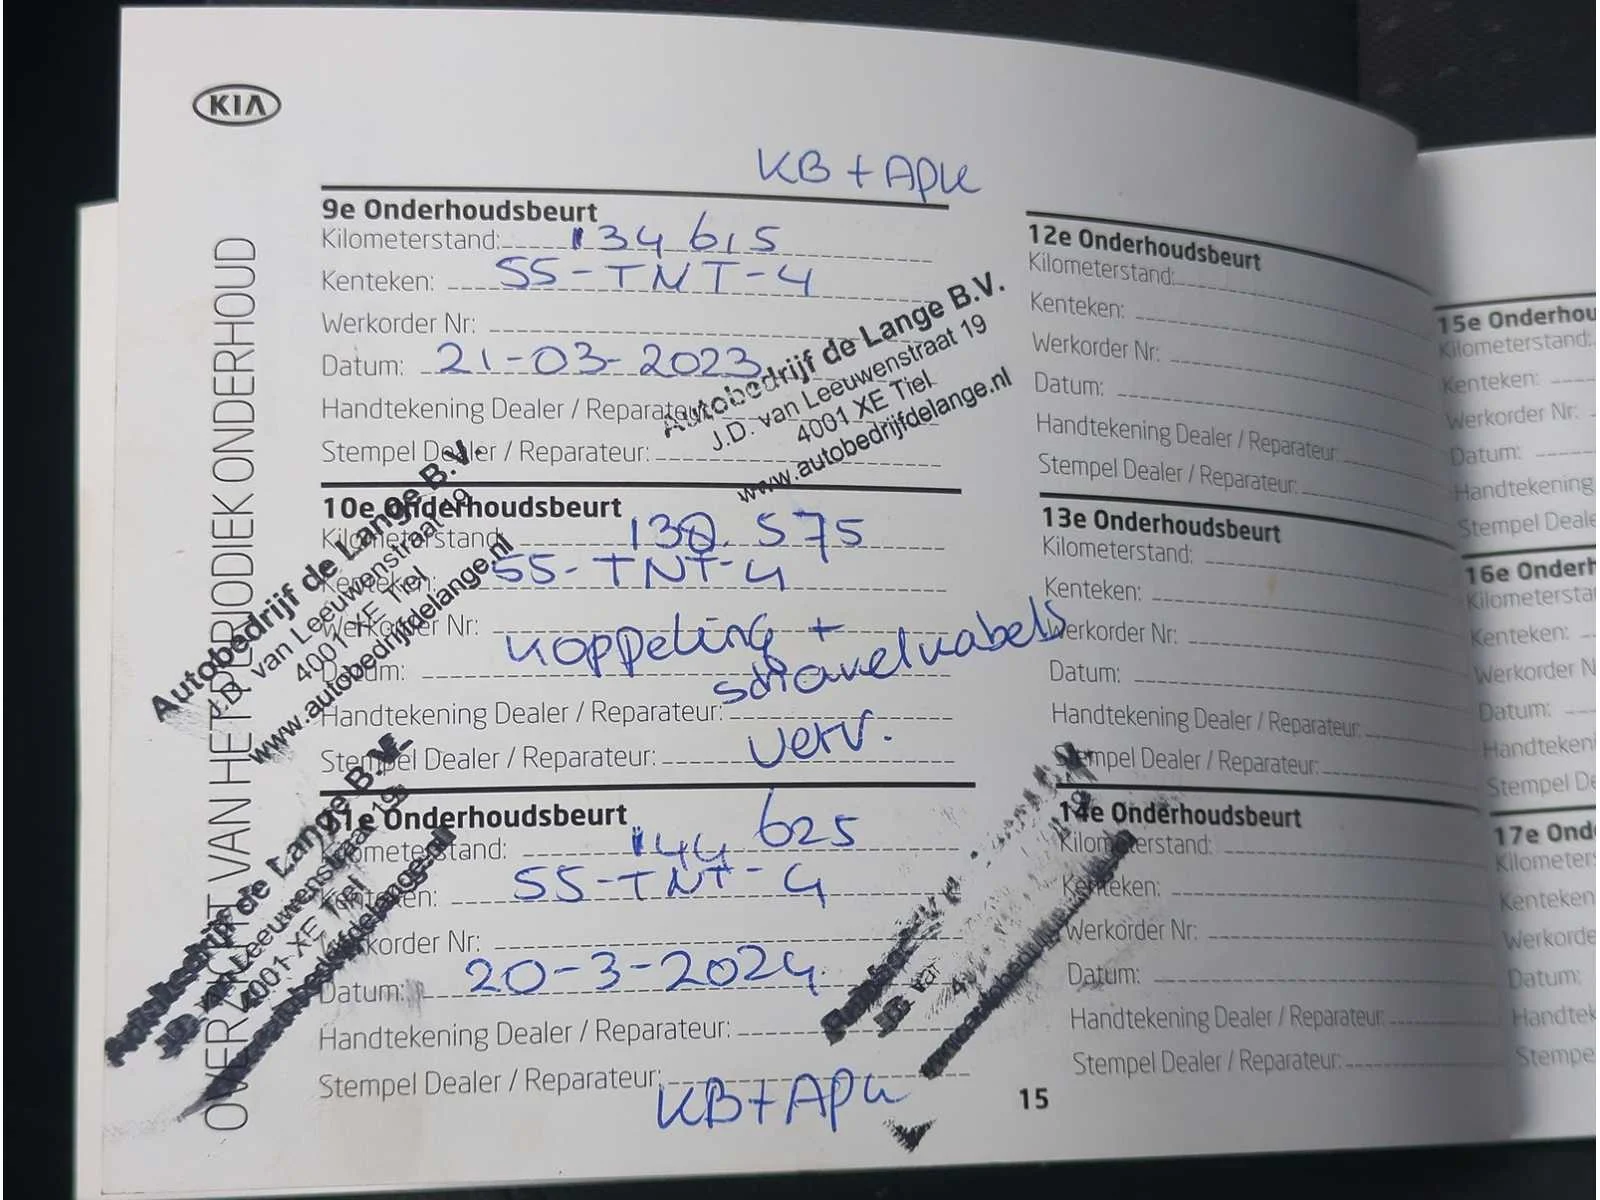 KIA
OVERZICHT VAN HET PERIODIEK ONDERHOUD
KB + APK
9e Onderhoudsbeurt
Kilometerstand: 134 615
Kenteken: 55-TNT-4
Werkorder Nr:
Datum: 21-03-2023
Handtekening Dealer / Reparateur:
Stempel Dealer / Reparateur:
Autobedrijf de Lange B.V.
J.D. van Leeuwenstraat 19
4001 XE Tiel
www.autobedrijfdelange.nl
10e Onderhoudsbeurt
Kilometerstand: 138.575
Kenteken: 55-TNT-4
Werkorder Nr:
koppeling +
Datum:
schakelkabels
Handtekening Dealer / Reparateur:
verv.
Stempel Dealer / Reparateur:
Autobedrijf de Lange B.V.
J.D. van Leeuwenstraat 19
4001 XE Tiel
www.autobedrijfdelange.nl
11e Onderhoudsbeurt
Kilometerstand: 144 625
Kenteken: 55-TNT-4
Werkorder Nr:
Datum: 20-3-2024
Handtekening Dealer / Reparateur:
Stempel Dealer / Reparateur:
KB+APK
Autobedrijf de Lange B.V.
J.D. van Leeuwenstraat 19
4001 XE Tiel
www.autobedrijfdelange.nl
12e Onderhoudsbeurt
Kilometerstand:
Kenteken:
Werkorder Nr:
Datum:
Handtekening Dealer / Reparateur:
Stempel Dealer / Reparateur:
13e Onderhoudsbeurt
Kilometerstand:
Kenteken:
Werkorder Nr:
Datum:
Handtekening Dealer / Reparateur:
Stempel Dealer / Reparateur:
14e Onderhoudsbeurt
Kilometerstand:
Kenteken:
Werkorder Nr:
Datum:
Handtekening Dealer / Reparateur:
Stempel Dealer / Reparateur:
15
15e Onderhou
Kilometerstand:
Kenteken:
Werkorder Nr:
Datum:
Handtekening
Stempel Deale
16e Onderh
Kilometersta
Kenteken:
Werkorder N
Datum:
Handtekeni
Stempel De
17e Ond
Kilometer
Kenteken
Werkorde
Datum:
Handtek
Stempe